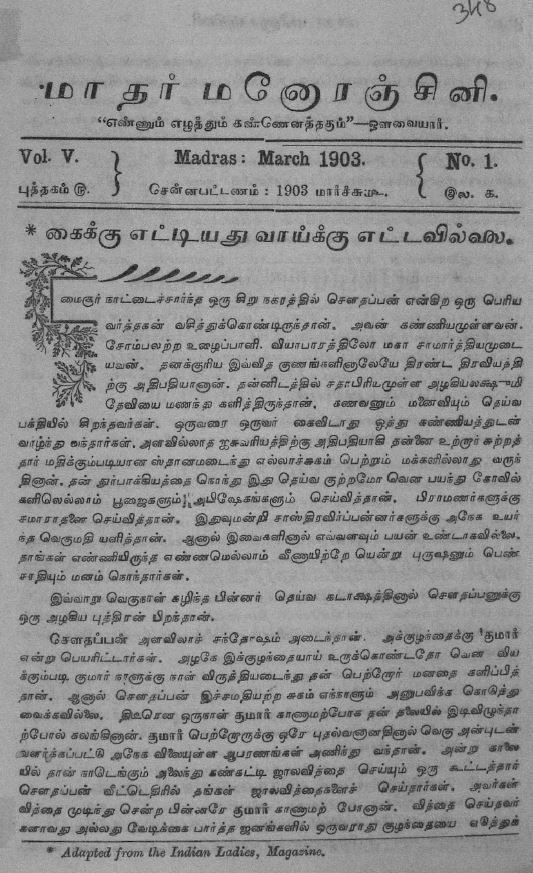 348
மாதர் மனோரஞ்சினி.
“எண்ணும் எழுத்தும் கண்ணெனத்தகும்”—ஔவையார்.
Vol. V. Madras: March 1903. No. 1.
புத்தகம் ௫. சென்னபட்டணம் : 1903 மார்ச்சுமீ. இல. க.
* கைக்கு எட்டியது வாய்க்கு எட்டவில்லை.
மைசூர் நாட்டைச்சார்ந்த ஒரு சிறு நகரத்தில் சௌதப்பன் என்கிற ஒரு பெரிய
வர்த்தகன் வசித்துக்கொண்டிருந்தான். அவன் கண்ணியமுள்ளவன்.
சோம்பலற்ற உழைப்பாளி. வியாபாரத்திலோ மகா சாமார்த்தியமுடை
யவன். தனக்குரிய இவ்வித குணங்களினாலேயே திரண்ட திரவியத்தி
ற்கு அதிபதியானான். தன்னிடத்தில் சதாபிரியமுள்ள அழகியலக்ஷுமி
தேவியை மணந்து களித்திருந்தான். கணவனும் மனைவியும் தெய்வ
பக்தியில் சிறந்தவர்கள். ஒருவரை ஒருவர் கைவிடாது ஒத்து கண்ணியத்துடன்
வாழ்ந்து வந்தார்கள். அளவில்லாத ஐசுவரியத்திற்கு அதிபதியாகி தன்னை உற்றார் சுற்றத்
தார் மதிக்கும்படியான ஸ்தானமடைந்து எல்லாச்சுகம் பெற்றும் மக்களில்லாது வருந்
தினான். தன் துர்பாக்கியத்தை நொந்து இது தெய்வ குற்றமோ வென பயந்து கோவில்
களிலெல்லாம் பூஜைகளும் அபிஷேகங்களும் செய்வித்தான். பிராமணர்களுக்கு
சமாராதனை செய்வித்தான். இதுவுமன்றி சாஸ்திரவிற்பன்னர்களுக்கு அநேக உயர்
ந்த வெகுமதி யளித்தான். ஆனால் இவைகளினால் எவ்வளவும் பயன் உண்டாகவில்லை.
தாங்கள் எண்ணியிருந்த எண்ணமெல்லாம் வீணாயிற்றே யென்று புருஷனும் பெண்
சாதியும் மனம் நொந்தார்கள்.
இவ்வாறு வெகுநாள் கழிந்த பின்னர் தெய்வ கடாக்ஷத்தினால் சௌதப்பனுக்கு
ஒரு அழகிய புத்திரன் பிறந்தான்.
சேளதப்பன் அளவிலாச் சந்தோஷம் அடைந்தான். அக்குழந்தைக்கு ‘குமார்
என்று பெயரிட்டார்கள். அழகே இக்குழந்தையாய் உருக்கொண்டதோ வென விய
க்கும்படி குமார் நாளுக்கு நாள் விருத்தியடைந்து தன் பெற்றோர் மனதை களிப்பித்
தான். ஆனால் சௌதப்பன் இச்சமதியற்ற சுகம் எந்நாளும் அனுபவிக்க கொடுத்து
வைக்கவில்லை. திடீரென ஒருநாள் குமார் காணாமற்போக தன் தலையில் இடிவிழுந்தா
ற்போல் கலங்கினான். குமார் பெற்றோருக்கு ஒரே புதல்வனானதினால் வெகு அன்புடன்
வளர்க்கப்பட்டு அநேக விலையுள்ள ஆபரணங்கள் அணிந்து வந்தான். அன்று காலை
யில் தான் நாடெங்கும் அலைந்து கண்கட்டி ஜாலவித்தை செய்யும் ஒரு கூட்டத்தார்
சௌதப்பன் வீட்டெதிரில் தங்கள் ஜாலவித்தைகளைச் செய்தார்கள். அவர்கள்
வித்தை முடிந்து சென்ற பின்னரே குமார் காணாமற் போனான். வித்தை செய்தவர்
களாவது அல்லது வேடிக்கை பார்த்த ஜனங்களில் ஒருவராது குழந்தையை எடுத்துக்
* Adapted from the Indian Ladies, Magazine.